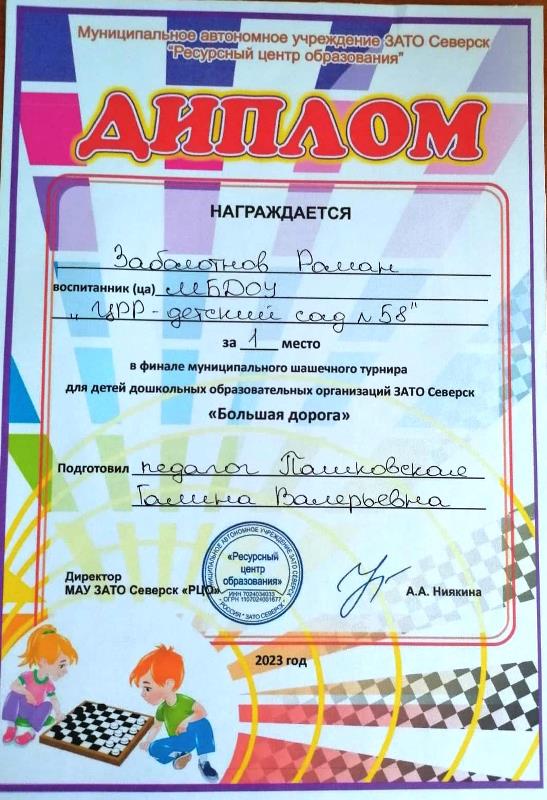 Муниципальное автономное учреждение ЗАТО Северск
"Ресурсный центр образования"
ДИПЛОМ
НАГРАЖДАЕТСЯ
Заболотнов Роман
воспитанник (ца) МБДОУ
„ ЦРР - детский сад №58"
за 1 место
в финале муниципального шашечного турнира
для детей дошкольных образовательных организаций ЗАТО Северск
«Большая дорога»
Подготовил педагог Пашковская
Галина Валерьевна
МУНИЦИПАЛЬНОЕ АВТОНОМНОЕ УЧРЕЖДЕНИЕ ЗАТО СЕВЕРСК
«Ресурсный
центр
образования»
ИНН 7024034033
ОГРН 1107024001677
РОССИЯ * ЗАТО СЕВЕРСК
Директор
МАУ ЗАТО Северск «РЦО»
А.А. Ниякина
2023 год